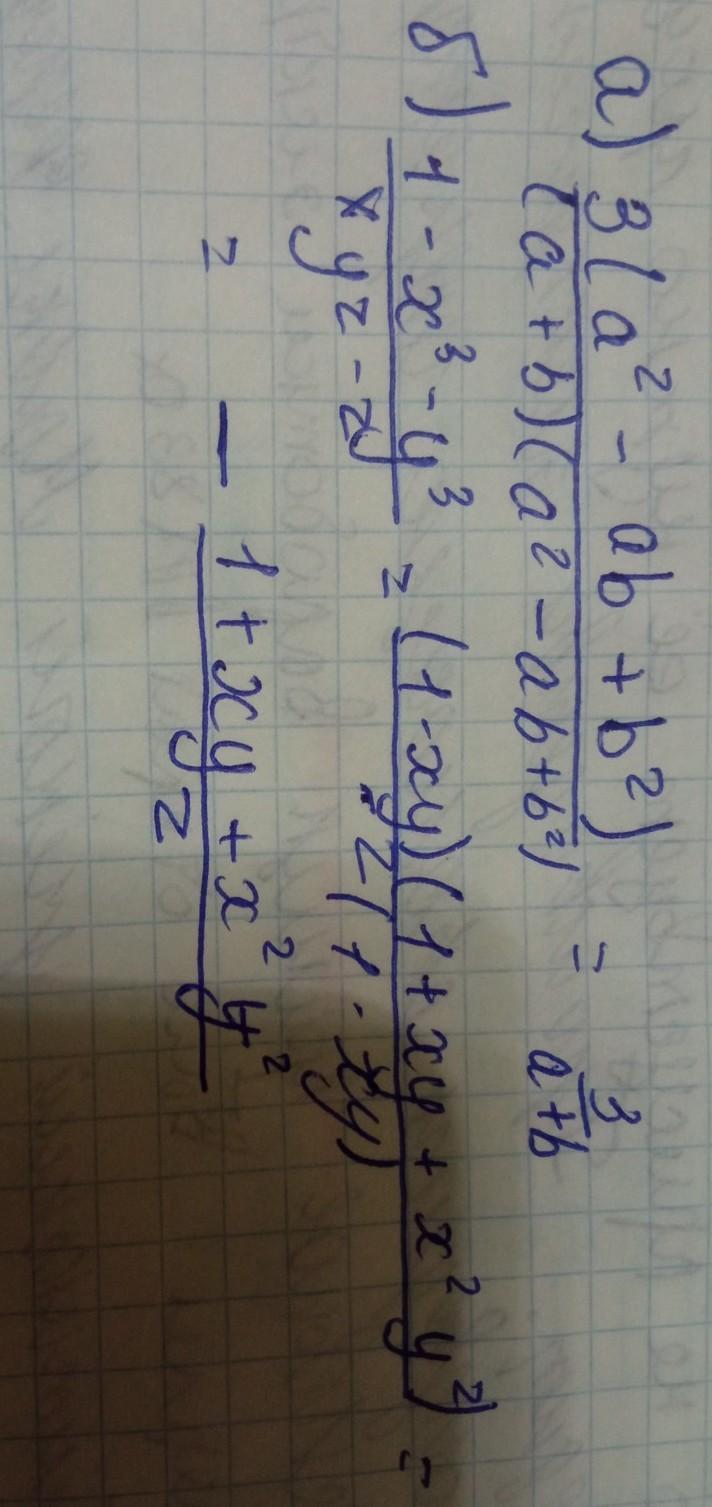 а) 3(a² - ab + b²) / (a + b)(a² - ab + b²) = 3 / a+b
б) 1 - x³ - y³ / xyz - z = (1-xy)(1 + xy + x² y²) / z(1 - xy) =
= - 1 + xy + x² y² / z